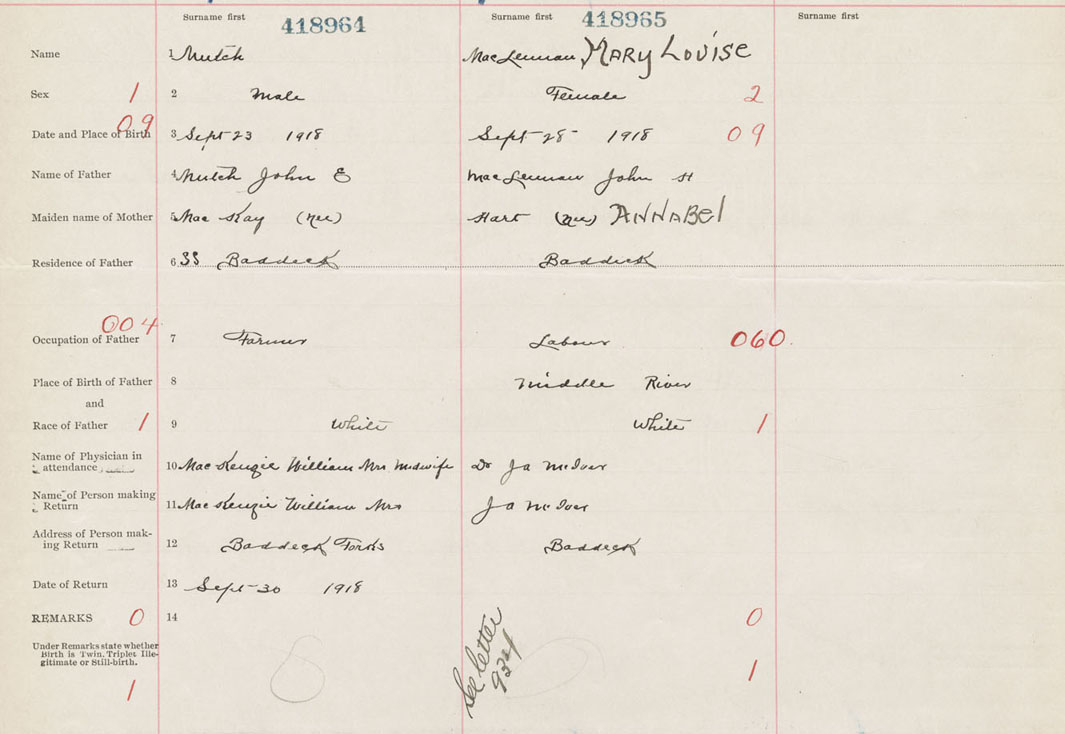 Surname first 418964 Surname first 418965 Surname first
Name 1 Mutch MacLennan, MARY LOUISE
Sex 1 2 Male Female 2
Date and Place of Birth 09 3 Sept 23 1918 Sept 28 1918 09
Name of Father 4 Mutch John E MacLennan John H
Maiden name of Mother 5 MacKay (nee) Hart (nee) ANNABEl
Residence of Father 6 SS Baddeck Baddeck
004
Occupation of Father 7 Farmer Labour 060.
Place of Birth of Father 8 Middle River
and
Race of Father 1 9 White White 1
Name of Physician in
attendance 10 MacKenzie William Mrs Midwife Dr J a McIver
Name of Person making
Return 11 MacKenzie William Mrs J a McIver
Address of Person mak-
ing Return 12 Baddeck Forks Baddeck
Date of Return 13 Sept 30 1918
REMARKS 0 14 0
Under Remarks state whether
Birth is Twin, Triplet Ille-
gitimate or Still-birth.
1 1
See letter